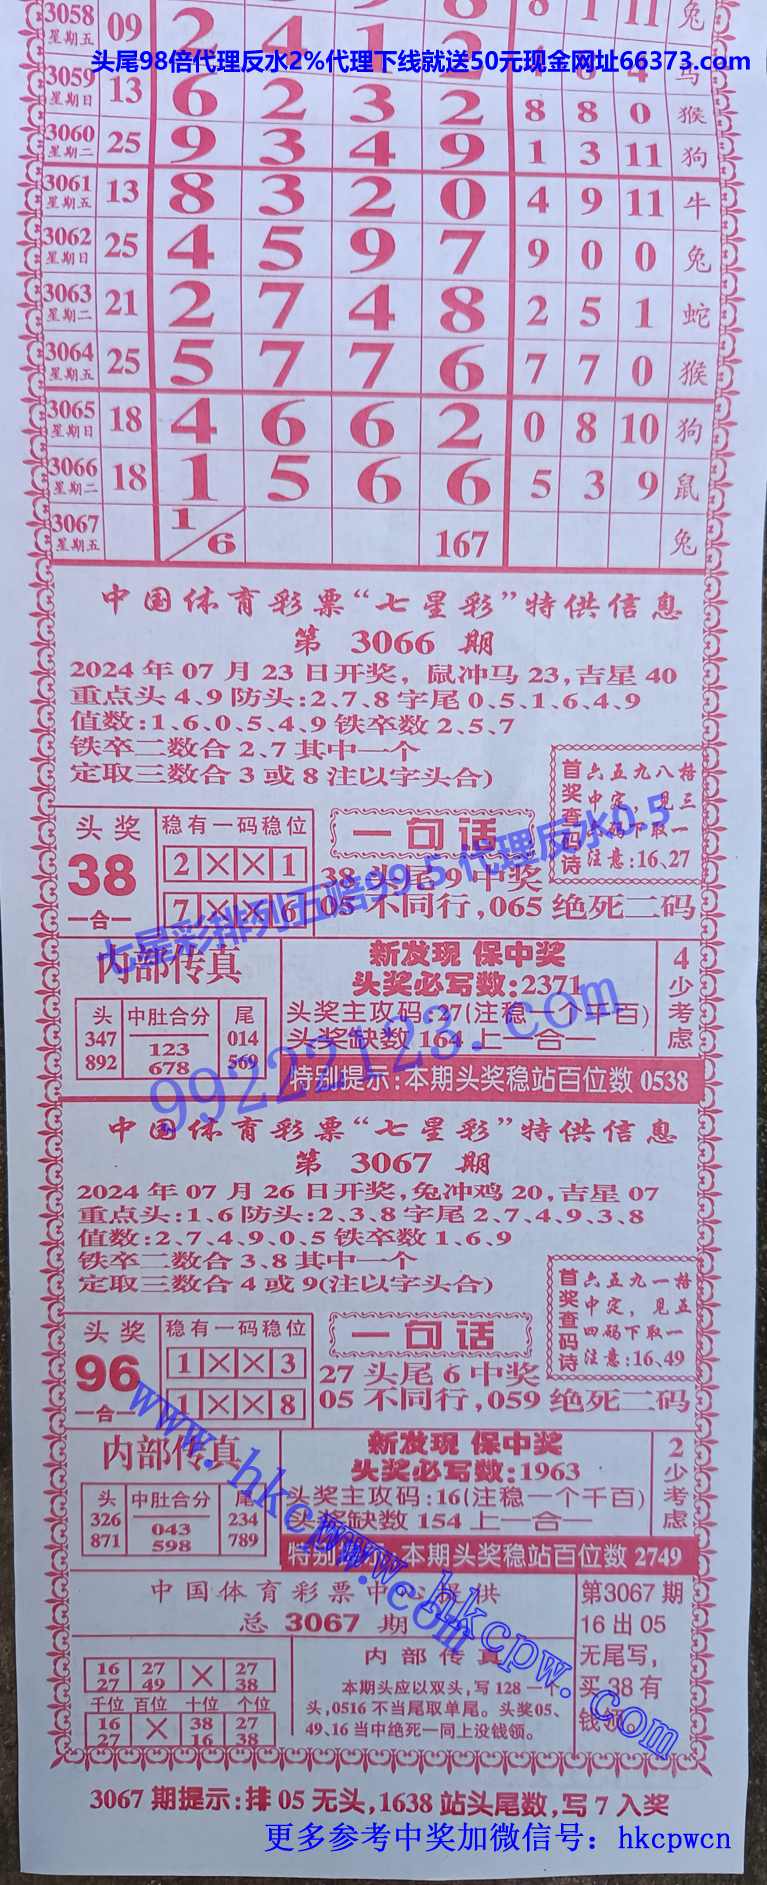 3058 星期五 09 2 4 1 8 1 11 兔
头尾98倍代理反水2%代理下线就送50元现金网址66373.com
3059 星期日 13 6 2 3 2 8 8 0 猴
3060 星期二 25 9 3 4 9 1 3 11 狗
3061 星期五 13 8 3 2 0 4 9 11 牛
3062 星期日 25 4 5 9 7 9 0 0 兔
3063 星期二 21 2 7 4 8 2 5 1 蛇
3064 星期五 25 5 7 7 6 7 7 0 猴
3065 星期日 18 4 6 6 2 0 8 10 狗
3066 星期二 18 1 5 6 6 5 3 9 鼠
3067 星期五 1/6 167 兔
中国体育彩票“七星彩”特供信息
第 3066 期
2024年07月23日开奖, 鼠冲马23,吉星40
重点头4、9防头:2、7、8字尾0、5、1、6、4、9
值数:1、6、0、5、4、9铁卒数2、5、7
铁卒二数合2、7其中一个
定取三数合3或8注以字头合)
首奖查码诗
六五九八格
中定, 见三
码下取一
注意:16、27
头奖
38
一合一
稳有一码稳位
2 × × 1
7 × × 6
一句话
38头尾9中奖
05不同行,065绝死二码
七星彩排列五赔99.5 代理反水0.5
内部传真
头 中肚合分 尾
347 123 014
892 678 569
新发现 保中奖
头奖必写数:2371
头奖主攻码:27(注稳一个千百)
头奖缺数164上一合一
特别提示:本期头奖稳站百位数0538
4少考虑
99222123.com
中国体育彩票“七星彩”特供信息
第 3067 期
2024年07月26日开奖,兔冲鸡20,吉星07
重点头:1、6防头:2、3、8字尾2、7、4、9、3、8
值数:2、7、4、9、0、5铁卒数1、6、9
铁卒二数合3、8其中一个
定取三数合4或9(注以字头合)
首奖查码诗
六五九一格
中定, 见五
四码下取一
注意:16、49
头奖
96
一合一
稳有一码稳位
1 × × 3
1 × × 8
一句话
27头尾6中奖
05不同行,059绝死二码
内部传真
头 中肚合分 尾
326 043 234
871 598 789
新发现 保中奖
头奖必写数:1963
头奖主攻码:16(注稳一个千百)
头奖缺数154上一合一
特别提示:本期头奖稳站百位数2749
2少考虑
www.hkcpw.com
www.hkcpw.com
中国体育彩票中心提供
总 3067 期
16 27 × 27
27 49 38
千位 百位 十位 个位
16 × 38 27
27 16 38
内部传真
本期头应以双头,写128一个
头,0516不当尾取单尾。头奖05、
49、16当中绝死一同上没钱领。
第3067期
16出05
无尾写,
买38有
钱领。
3067期提示:排05无头,1638站头尾数,写7入奖
更多参考中奖加微信号: hkcpwcn